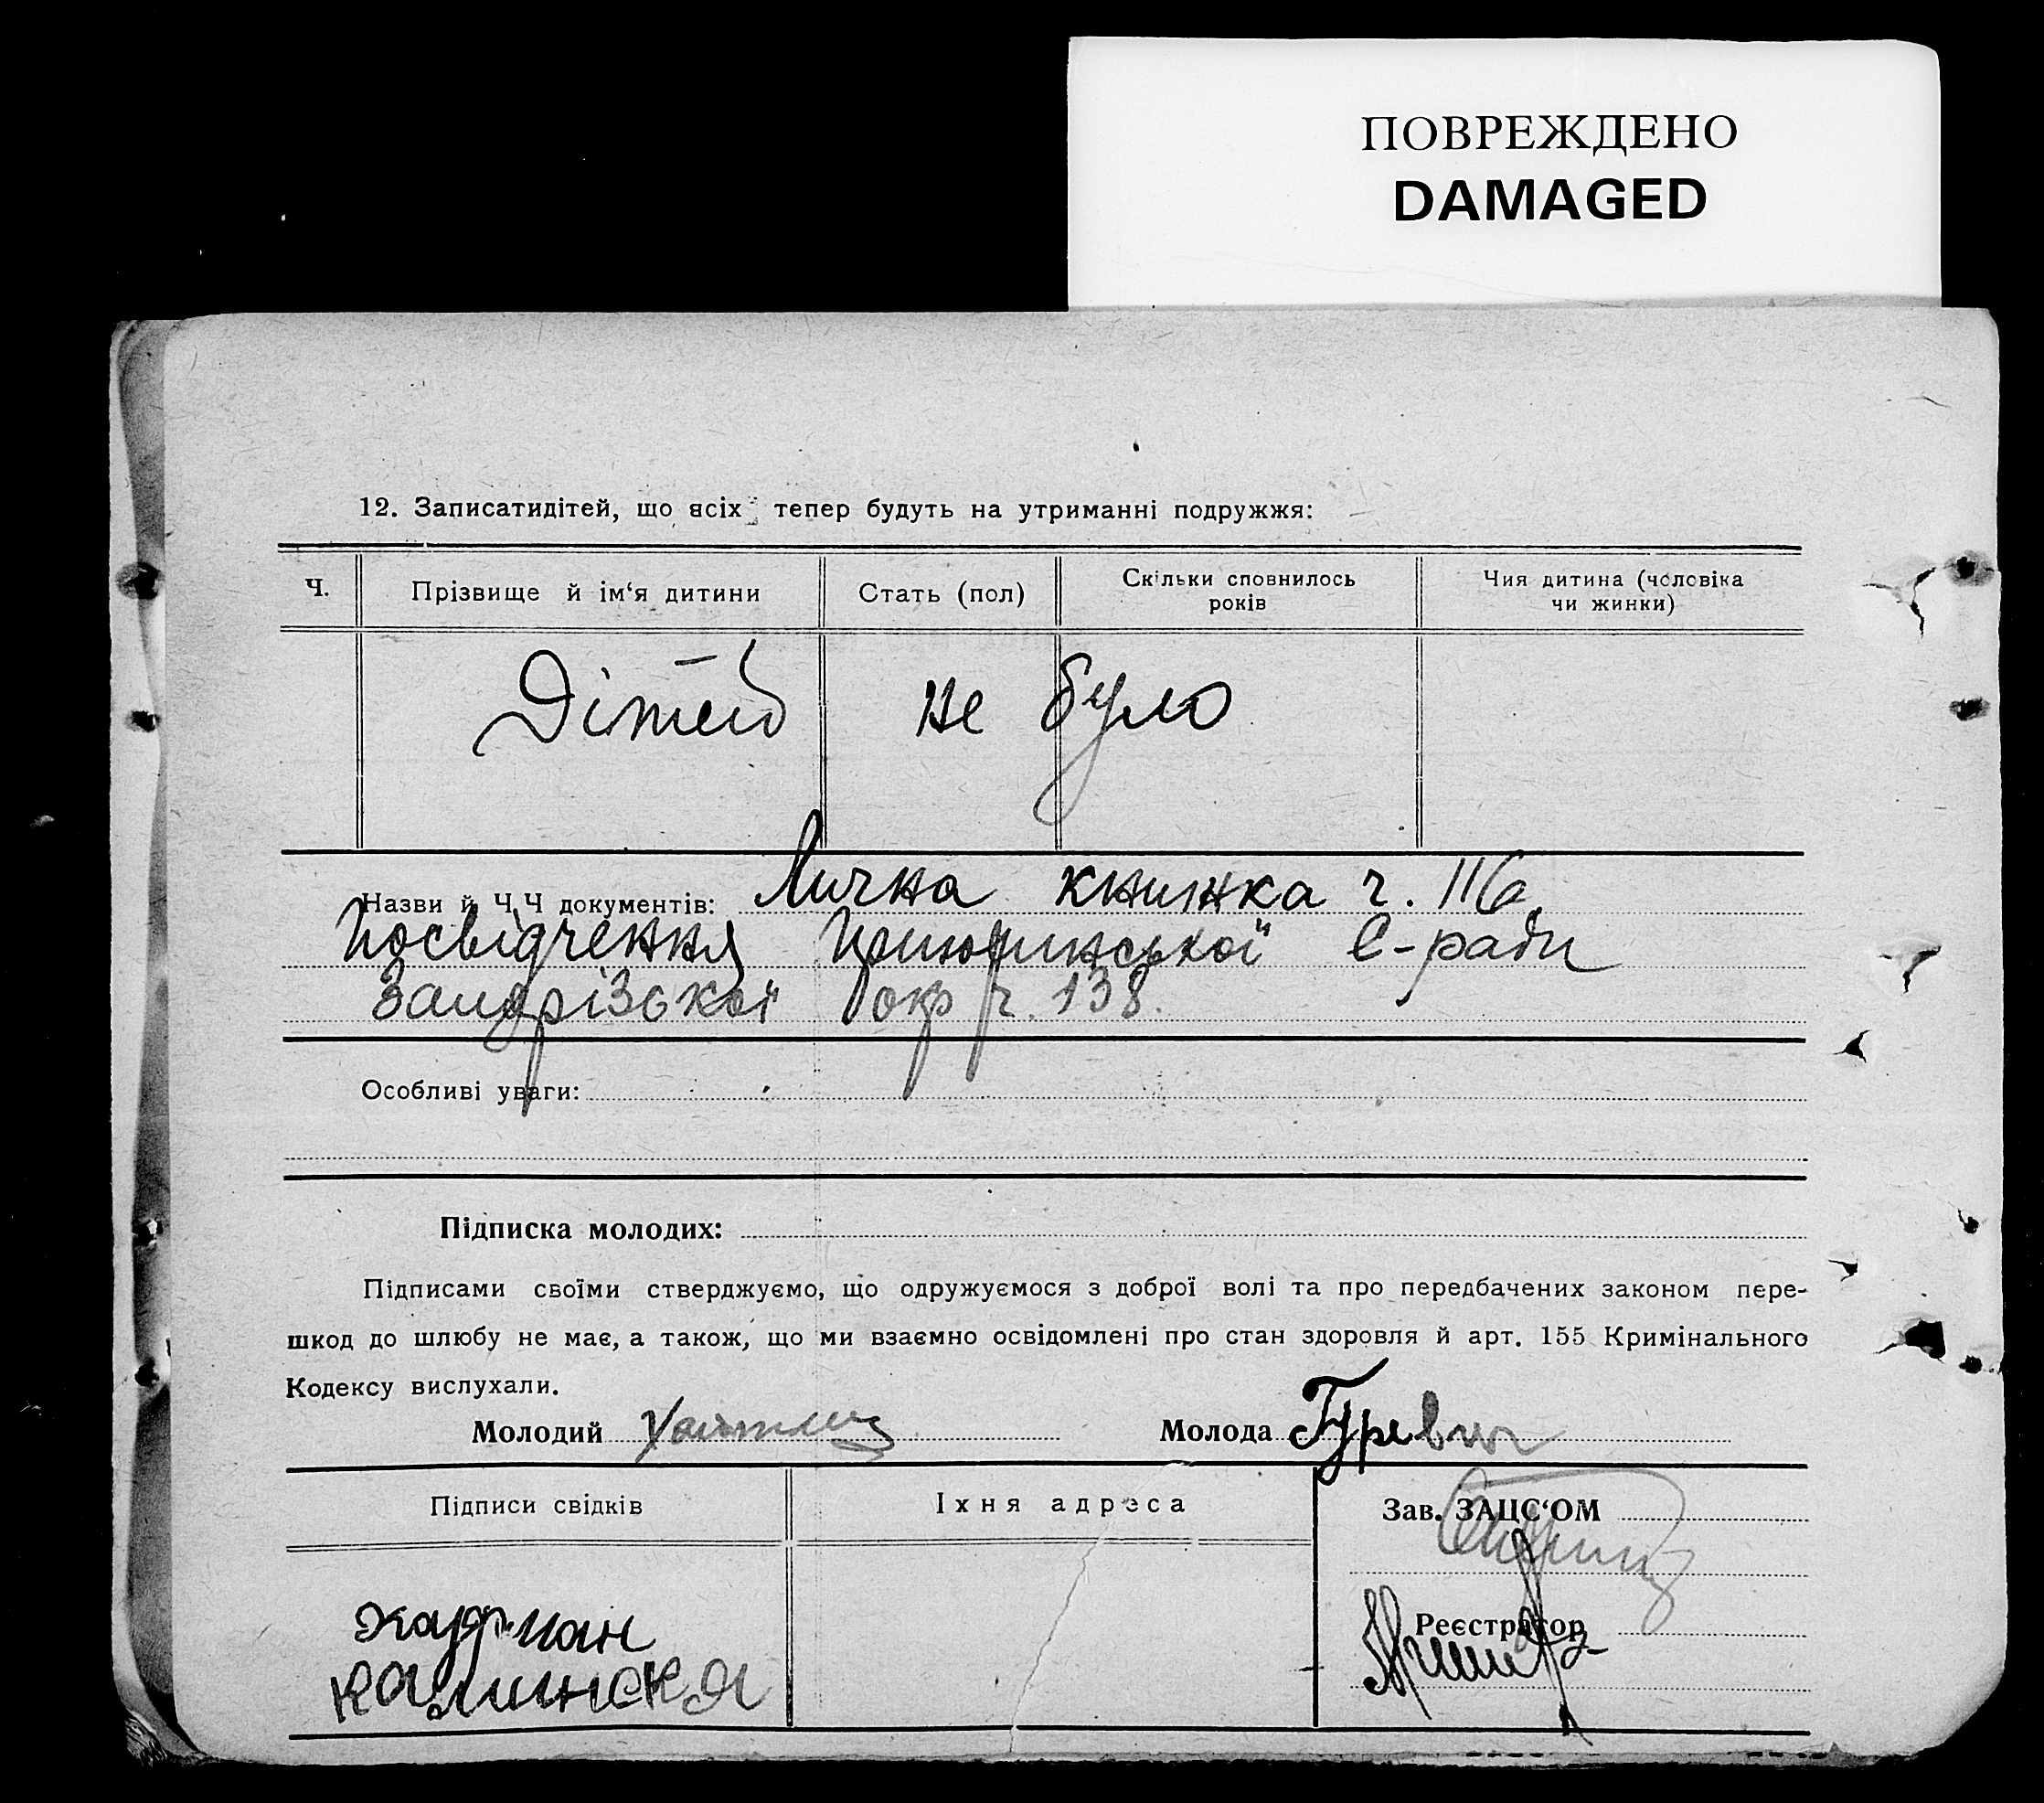 ПОВРЕЖДЕНО
DAMAGED
12. Записатидітей, що всіх тепер будуть на утриманні подружжя:
Ч.
Прізвище й ім‘я дитини
Стать (пол)
Скільки сповнилось
років
Чия дитина (чоловіка
чи жинки)
Дітей не було
Назви й Ч.Ч документів: Лична книжка ч. 116.
Посвідчення С-ради
окр ч. 138.
Особливі уваги:
Підписка молодих:
Підписами своїми стверджуємо, що одружуємося з доброї волі та про передбачених законом пере-
шкод до шлюбу не має, а також, що ми взаємно освідомлені про стан здоровля й арт. 155 Кримінального
Кодексу вислухали.
Молодий
Молода Гуревич
Підписи свідків
Іхня адреса
Зав. ЗАЦС‘ОМ
Реєстратор
калинская